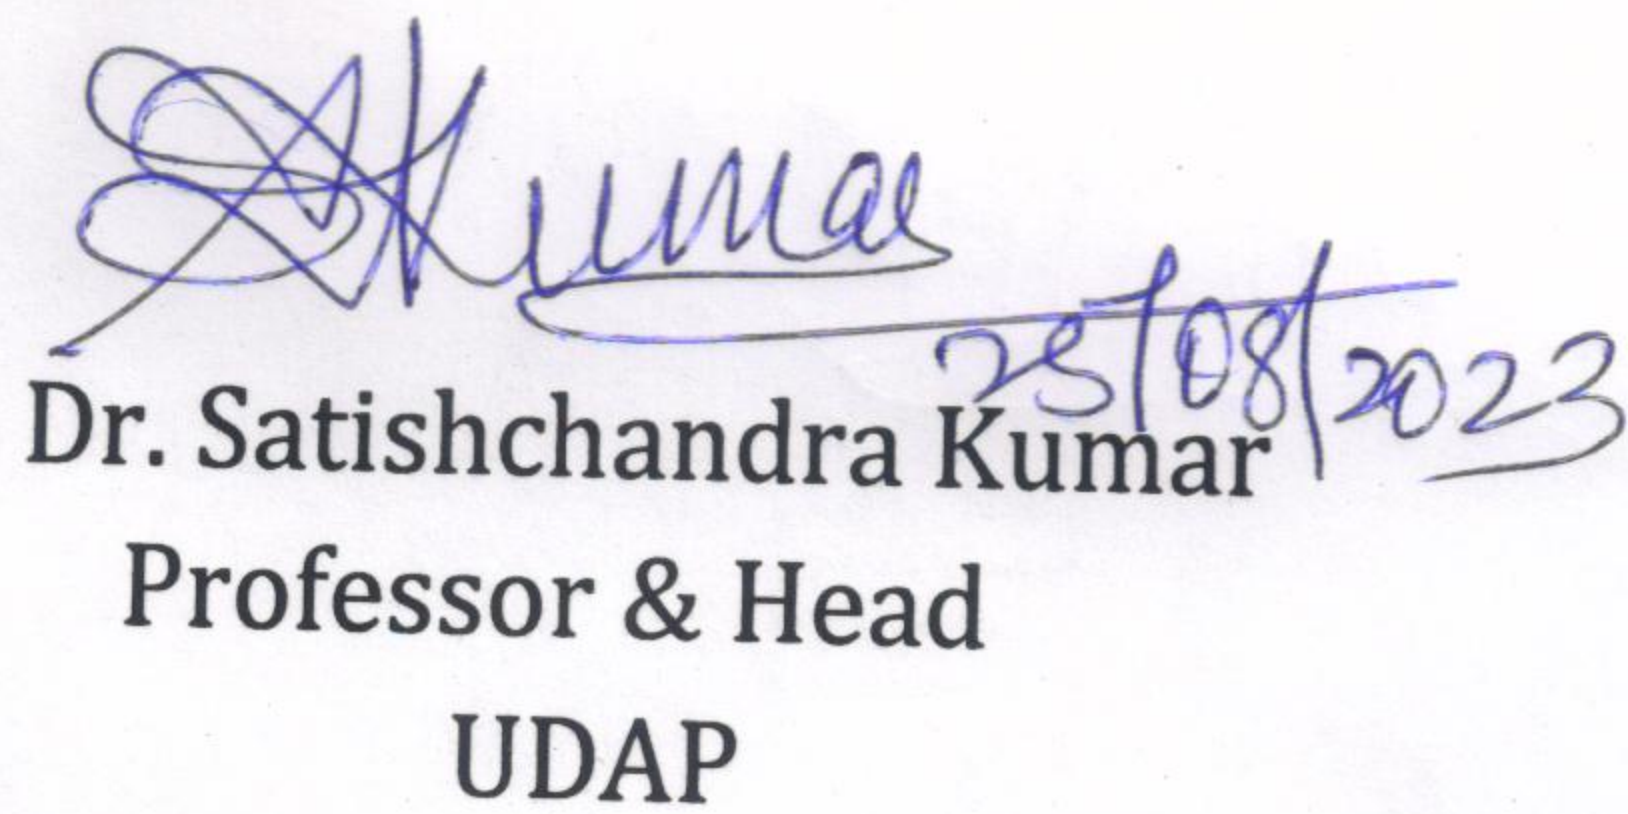 SKumar
25/08/2023
Dr. Satishchandra Kumar
Professor & Head
UDAP